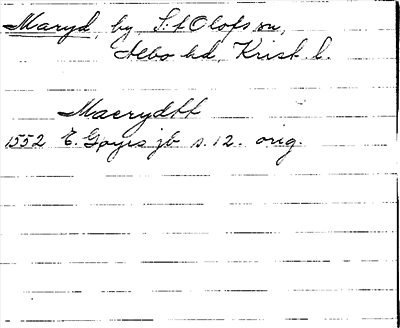 Maryd, by, S:t Olofs sn,
Albo hd, Krist. l.
Maerydtt
1552 E. Gøyes jb s. 12. orig.